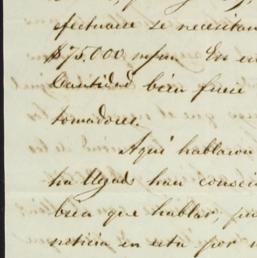 efectuarse se necesitan
$75.000 m/m. En e
Cantidad bien fuese
tomadores.
Aqui hablaron
ha llegado han consci
bien que hablar pu
noticia en esta por